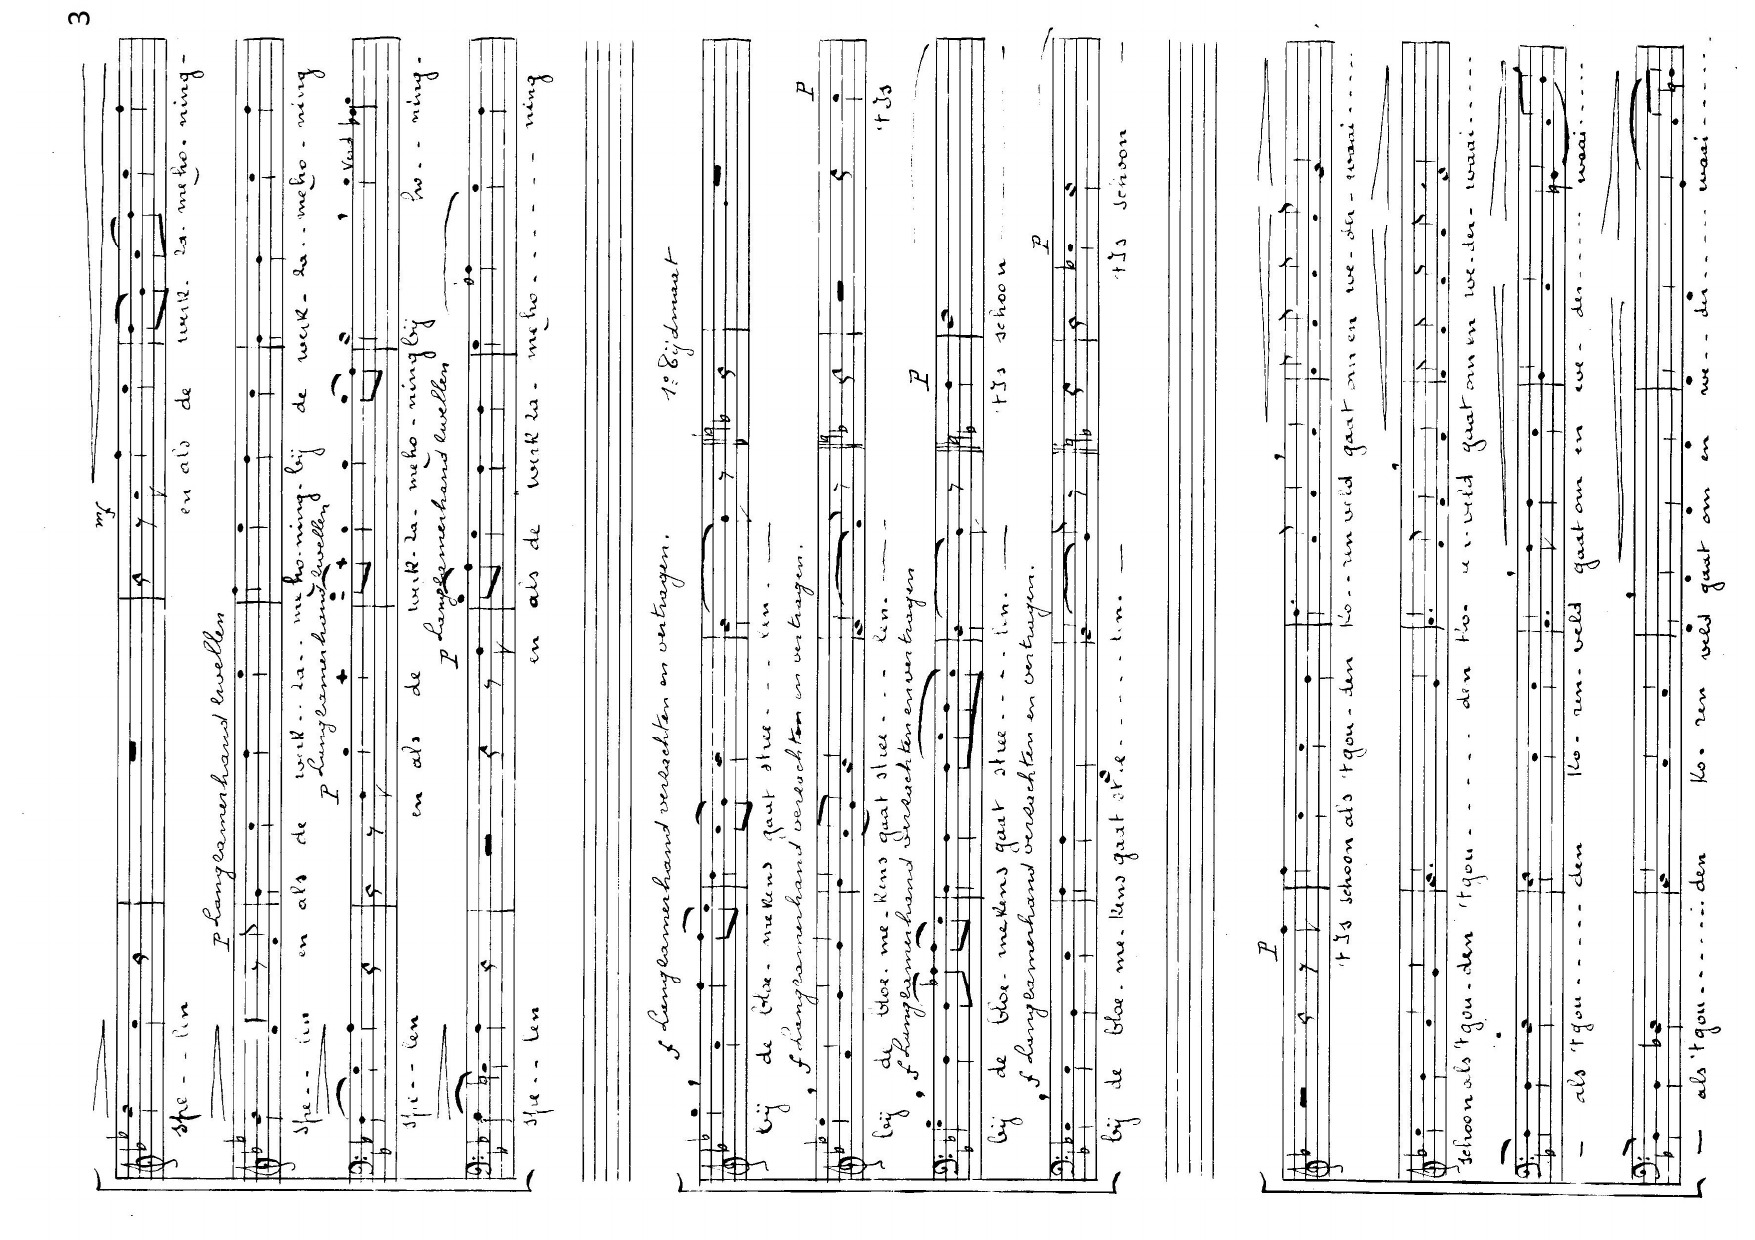 3
mf
spe - - lin en als de werk - za - me ho - ning -
P Langzamerhand zwellen
spe - - len en als de werk - - za - - me ho - ning - bij de werk - za - - me ho - ning
P Langzamerhand zwellen
spe - - len en als de werk - za - me ho - ning bij ho - - ning -
P Langzamerhand zwellen
spe - - len en als de werk za - me ho - - - - - - - ning
f Langzamerhand verzachten en vertragen. 1e Tijdmaat
bij de bloe - mekens gaat stree - - - len. —
f Langzamerhand verzachten en vertragen. P
bij de bloe - me - kens gaat stree - - - len. — 't Is
f Langzamerhand verzachten en vertragen P
bij de bloe - mekens gaat stree - - - len. — 't Is schoon
f Langzamerhand verzachten en vertragen. P
bij de bloe - me - kens gaat stree - - - - len. — 't Is schoon —
P
't Is schoon als 't gou - den Ko - - ren veld gaat om en we - der - waai - - - - -
schoon als 't gou - den 't gou - - - - - den Ko - ren veld gaat om en we - der - waai - - - - -
— als 't gou - - - - - den Ko - ren - veld gaat om en we - der - - - - - waai - - - - -
— als 't gou - - - - - den Ko - ren veld gaat om en we - - der - - - - - waai - - - - -